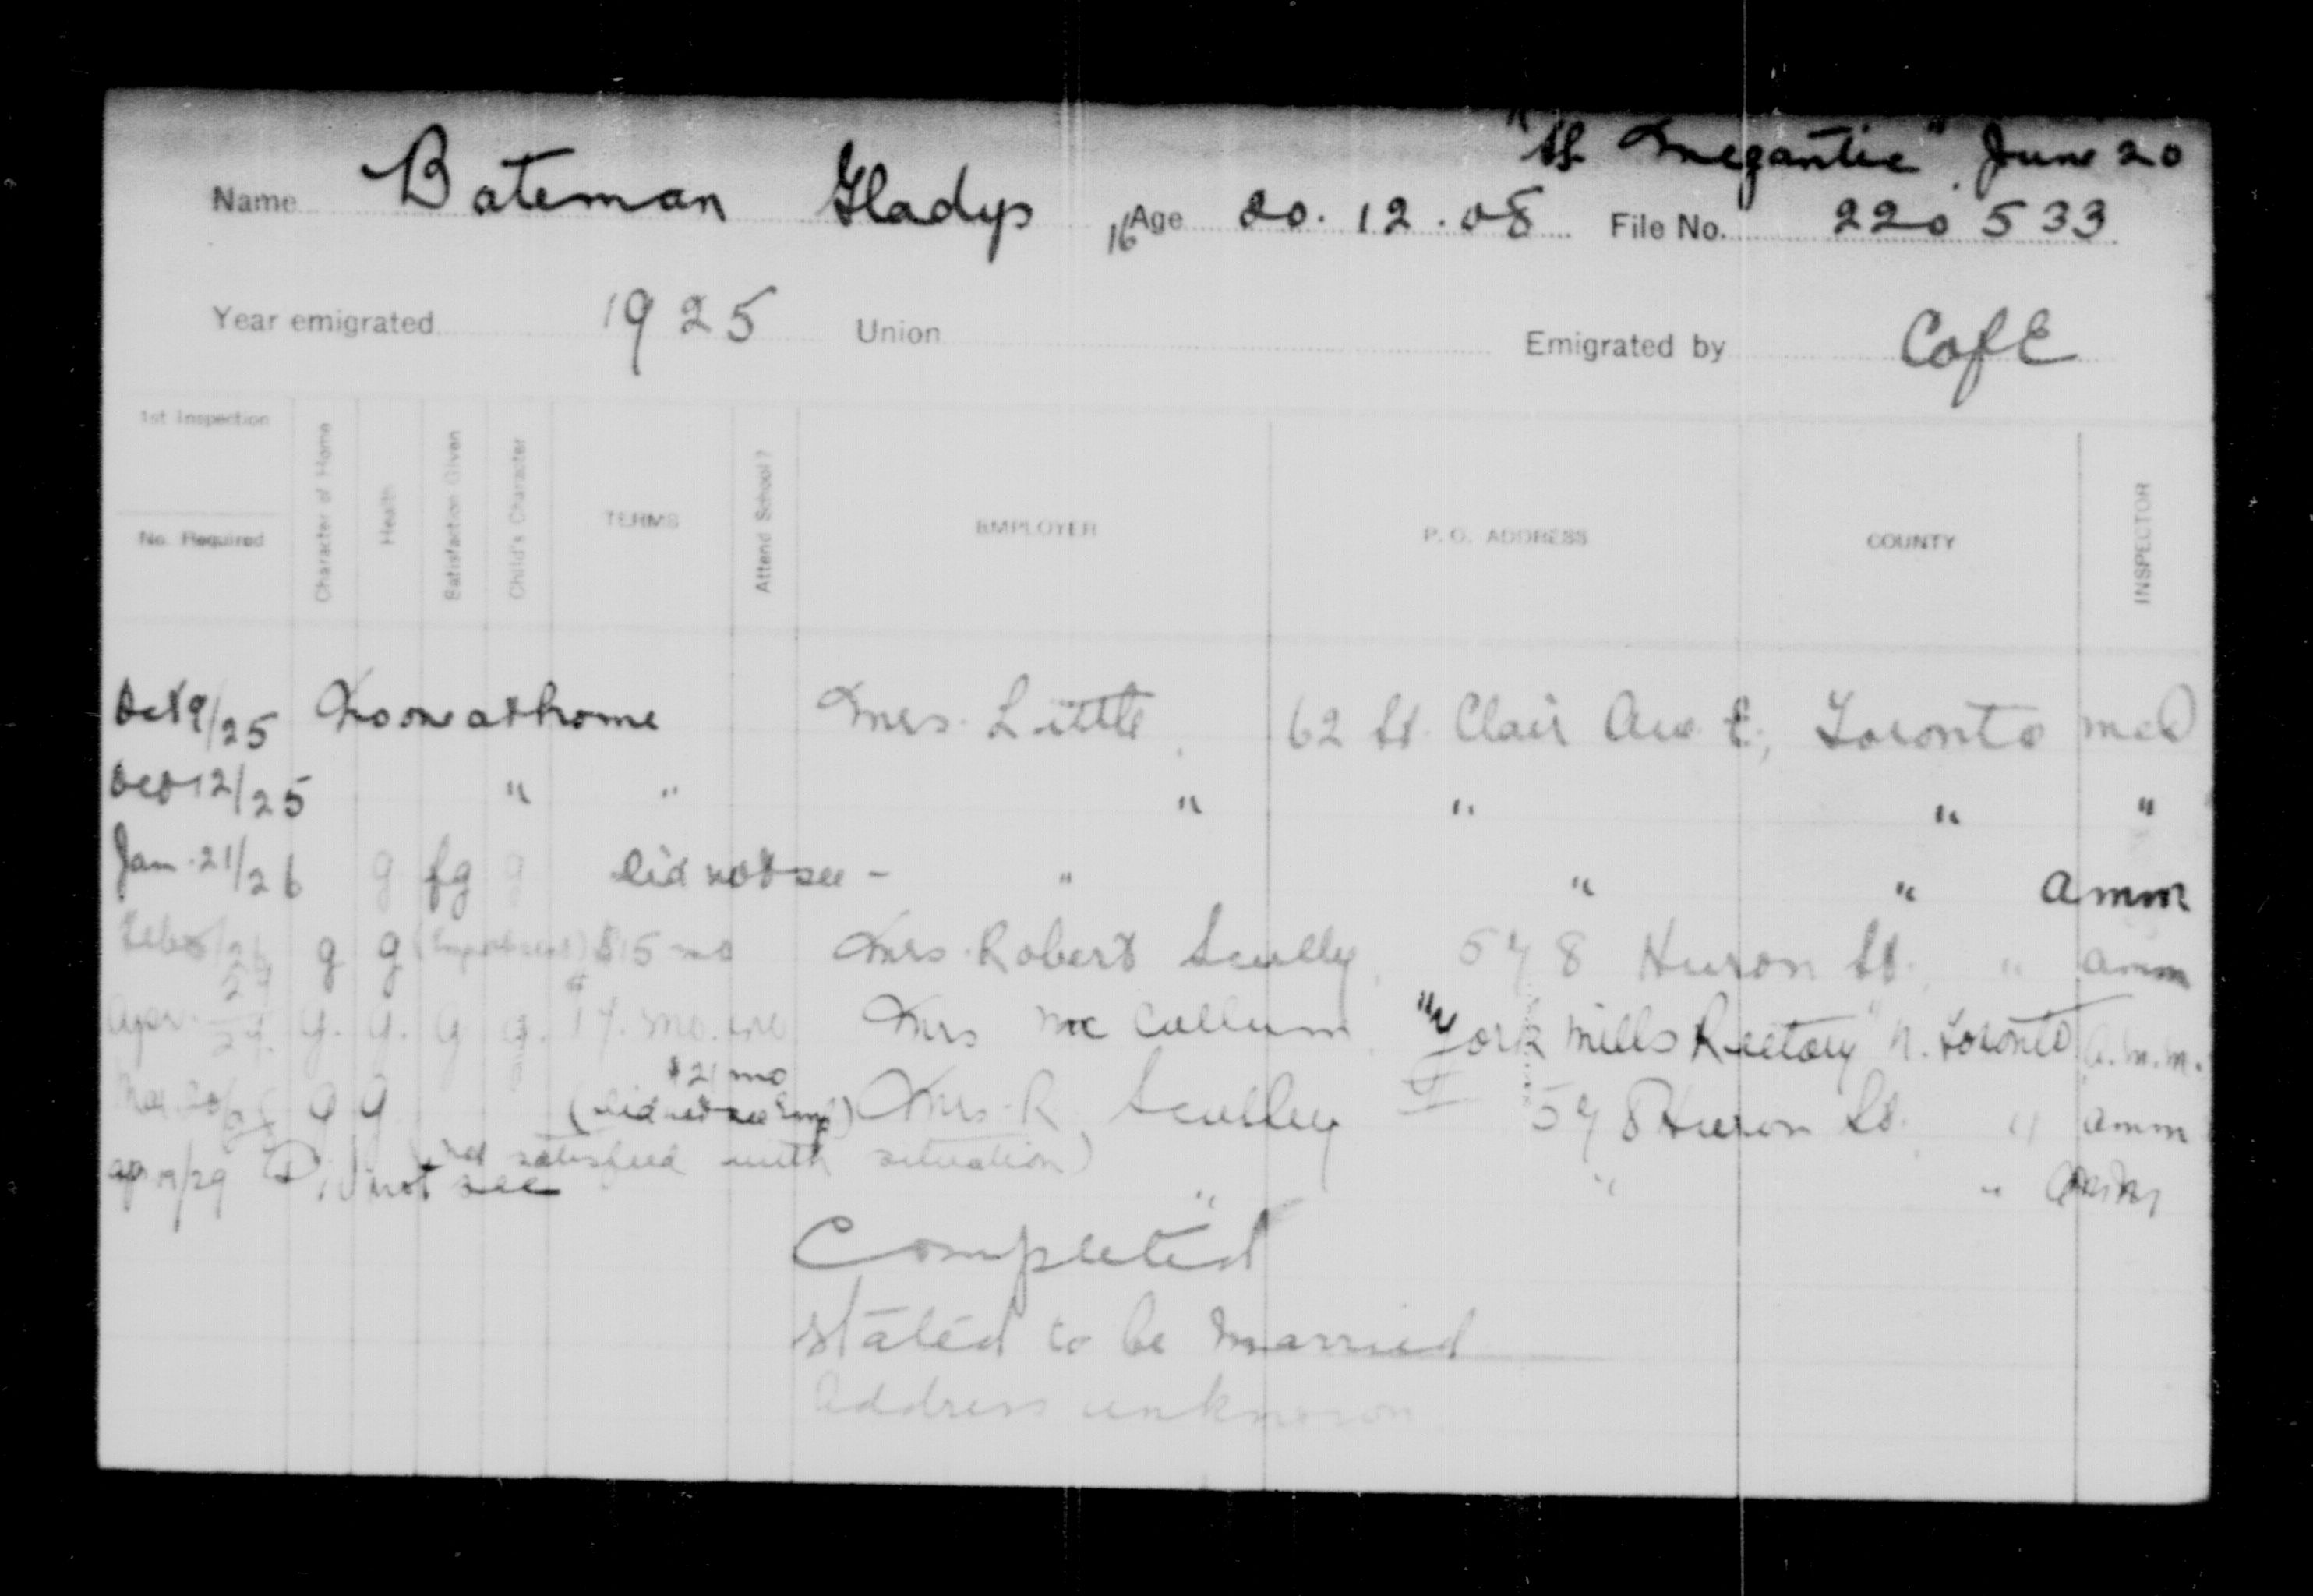 "SS. Megantic" June 20
Name Bateman Gladys 16 Age 20.12.08 File No. 220533
Year emigrated 1925 Union Emigrated by C of E
1st Inspection
No. Required
Character of Home Health Satisfaction Given Child's Character TERMS Attend School? EMPLOYER P. O. ADDRESS COUNTY INSPECTOR
Oct 9/25 No one at home Mrs. Little, 62 St. Clair Ave. E., Toronto
12/25 " " " " " "
Jan. 21/26 g fg g Did not see - " " " amm
Feb g g $15 mo Mrs. Robert Scully, 578 Huron St. " amm
Apr. g. g. g g. mo. Mrs McCollum "York Mills Rectory" N. Toronto a.m.m.
$21 mo
Mar. g g (did not see Emp) Mrs. R. Scully 578 Huron St. " amm
not satisfied with situation)
Ap 19/29 Did not see " " "
Completed
stated to be married
Address unknown